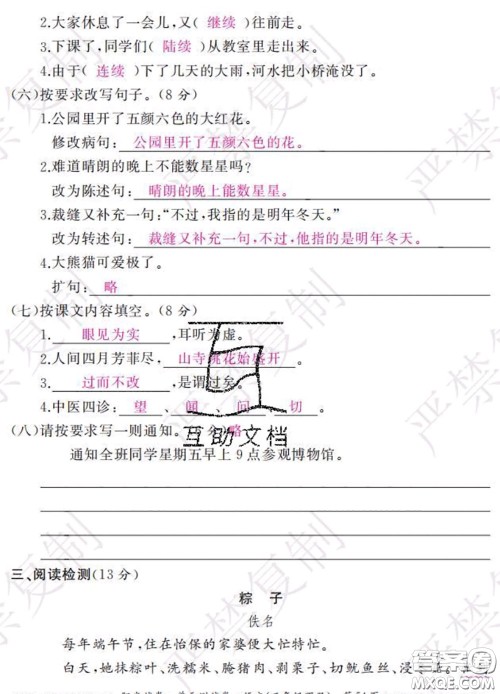 2.大家休息了一会儿,又(继续)往前走。
3.下课了,同学们(陆续)从教室里走出来。
4.由于(连续)下了几天的大雨,河水把小桥淹没了。
(六)按要求改写句子。(8分)
1.公园里开了五颜六色的大红花。
修改病句:公园里开了五颜六色的花。
2.难道晴朗的晚上不能数星星吗?
改为陈述句:晴朗的晚上能数星星。
3.裁缝又补充一句:“不过,我指的是明年冬天。”
改为转述句:裁缝又补充一句,不过,他指的是明年冬天。
4.大熊猫可爱极了。
扩句:略
(七)按课文内容填空。(8分)
1.眼见为实,耳听为虚。
2.人间四月芳菲尽,山寺桃花始盛开。
3.过而不改,是谓过矣。
4.中医四诊:望、闻、问、切。
(八)请按要求写一则通知。 分)略
通知全班同学星期五早上9点参观博物馆。
三、阅读检测(13分)
粽 子
佚名
每年端午节,住在怡保的家婆便大忙特忙。
白天,她抹粽叶、洗糯米、腌猪肉、剥栗子、切鱿鱼丝,浸
严禁复制
互助文档
答案圈
MXQE.COM